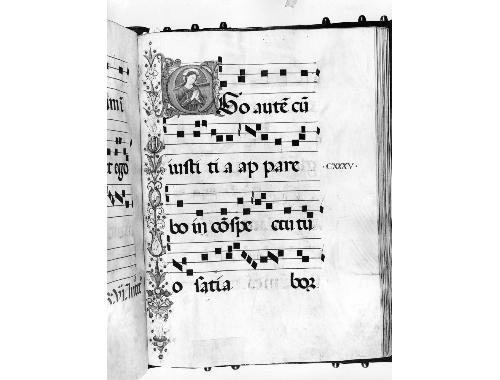 ego
EGo autē cū
iusti ti a ap pare
·CXXXV·
bo in cōspe ctu tu
o satia bor